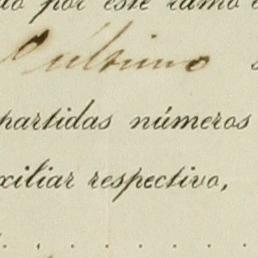 por este ramo
último
partidas números
respectivo,